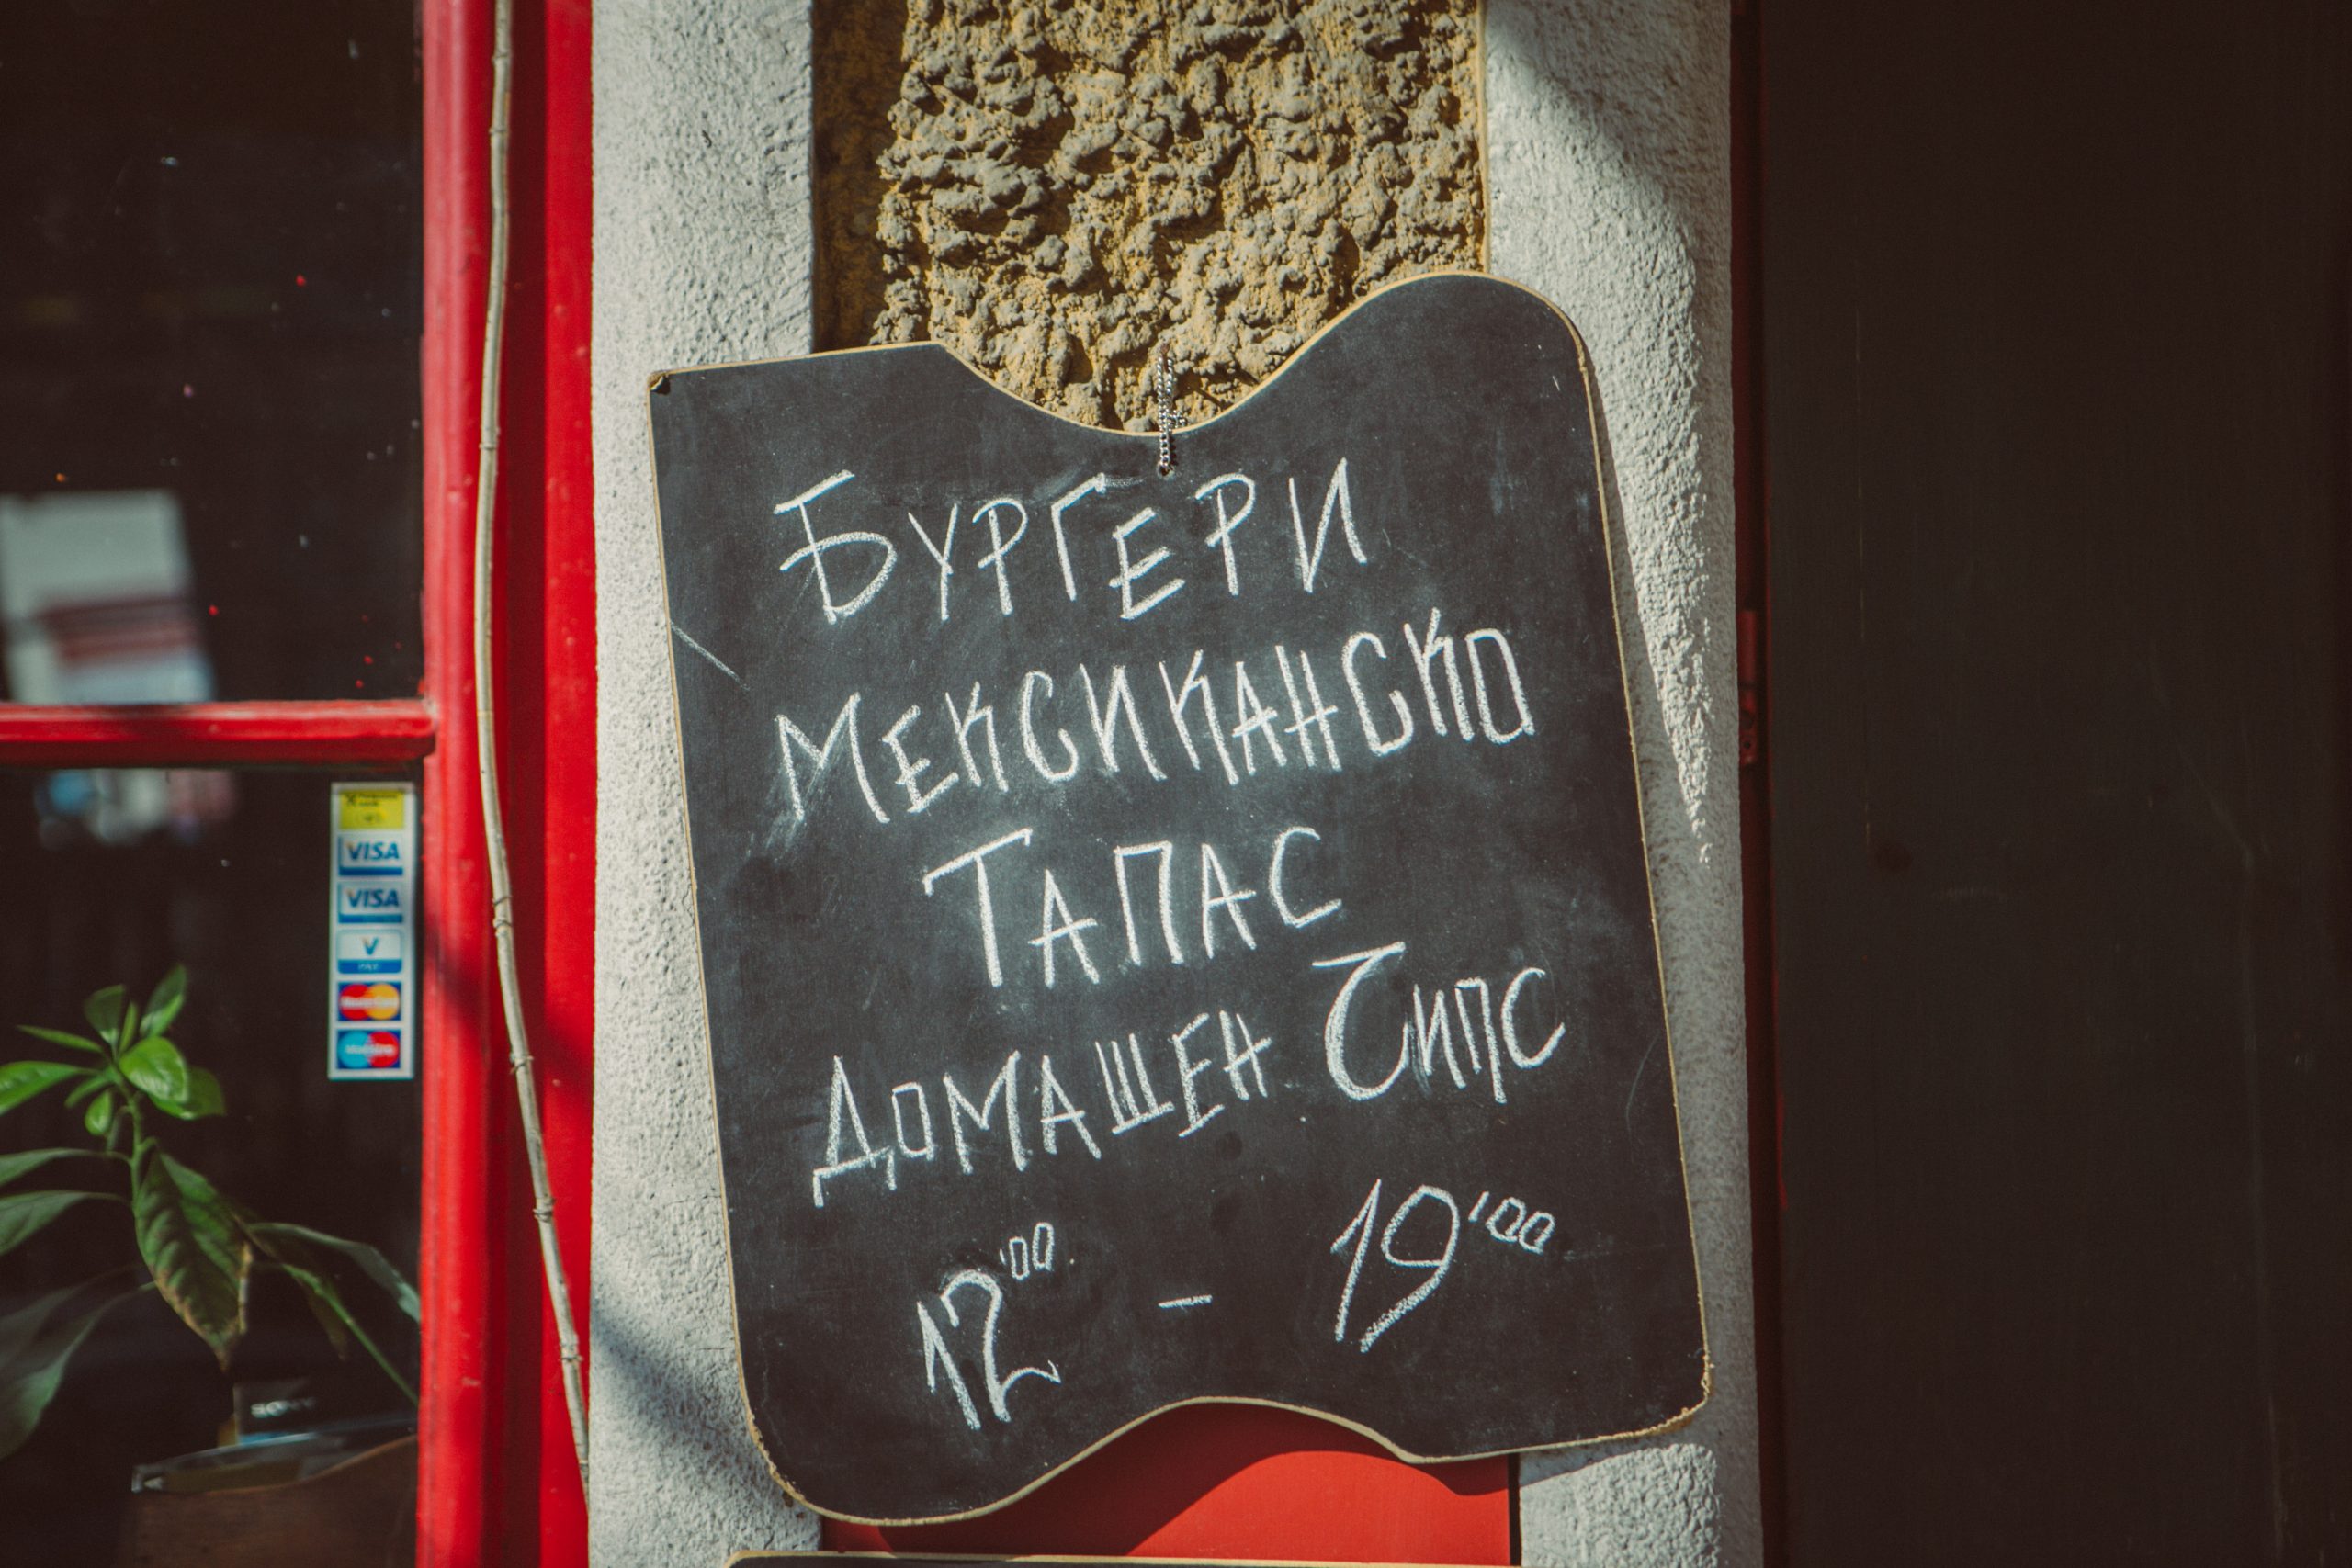 БУРГЕРИ
МЕКСИКАНСКО
ТАПАС
ДОМАШЕН ЧИПС
12'00 – 19'00
VISA
VISA
V
PAY
MasterCard
Maestro
SONY